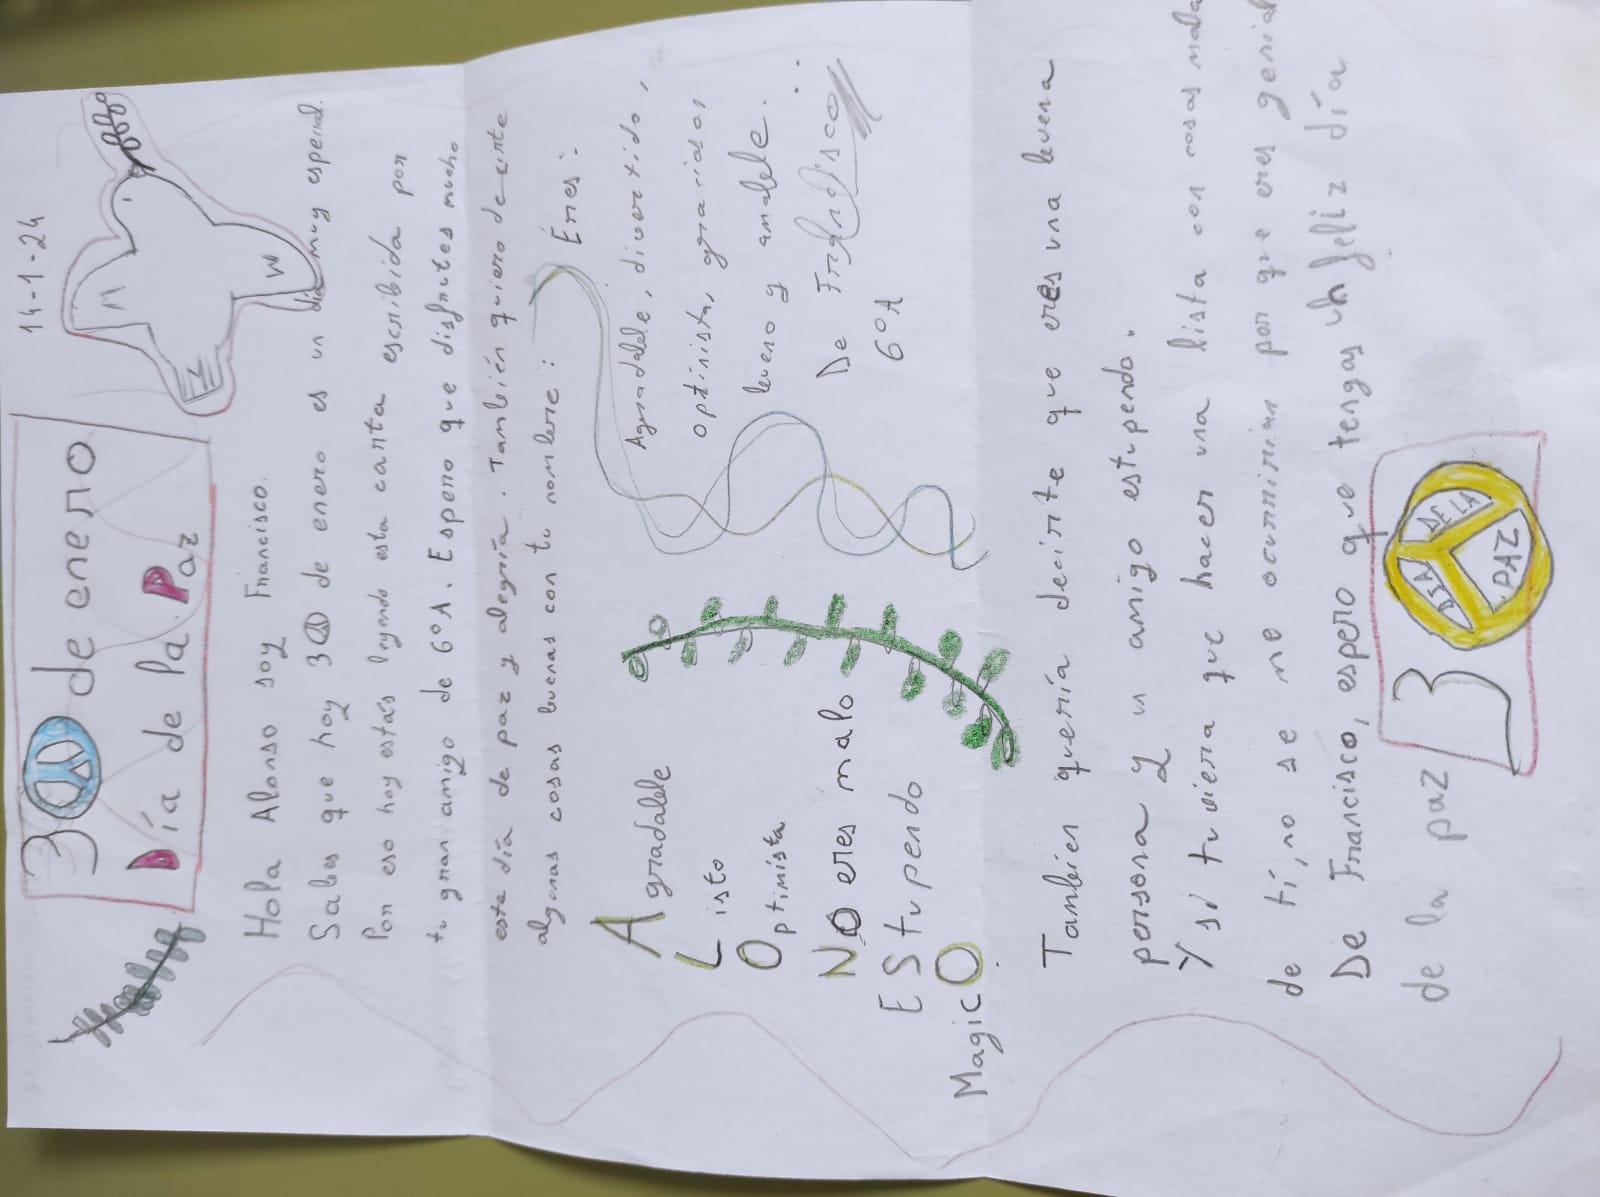 14-1-24
30 de enero
Día de la Paz
Hola Alonso soy Francisco.
Sabes que hoy 30 de enero es un día muy especial.
Por eso hoy estás leyendo esta carta escribida por
tu gran amigo de 6ºA. Espero que disfrutes mucho
este día de paz y alegría. También quiero decirte
algunas cosas buenas con tu nombre:
Agradable
Listo
Optimista
NO eres malo
EStupendo
MagicO
Eres:
Agradable, divertido,
optimista, gracioso,
bueno y amable.
De Francisco
6ºA
Tambien quería decirte que eres una buena
persona y un amigo estupendo.
Y si tuviera que hacer una lista con cosas malas
de tí, no se me ocurririan por que eres genial
De Francisco, espero que tengas un feliz día
de la paz
30
DÍA DE LA PAZ